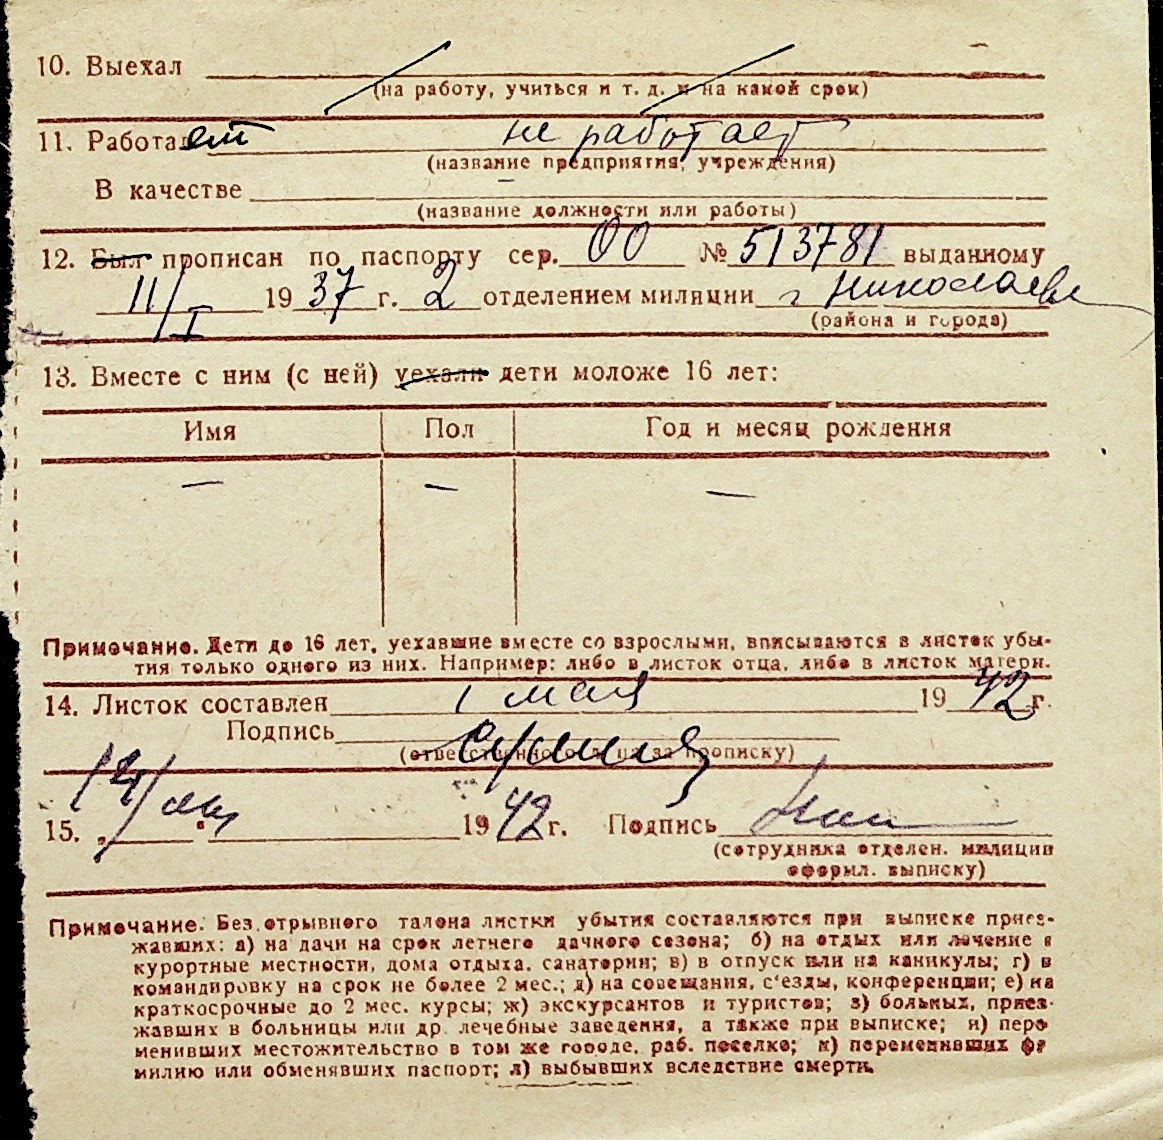 10. Выехал
(на работу, учиться и т. д. и на какой срок)
11. Работает не работает
(название предприятия, учреждения)
В качестве —
(название должности или работы)
12. Был прописан по паспорту сер. ОО № 513781 выданному
11/I 1937 г. 2 отделением милиции г Николаевы
(района и города)
13. Вместе с ним (с ней) уехали дети моложе 16 лет:
Имя Пол Год и месяц рождения
— — —
Примечание. Дети до 16 лет, уехавшие вместе со взрослыми, вписываются в листок убы-
тия только одного из них. Например: либо в листок отца, либо в листок матери.
14. Листок составлен 1 мая 1942 г.
Подпись
(ответственного лица за прописку)
15. „ " 1942 г. Подпись
(сотрудника отделен. милиции
оформл. выписку)
Примечание. Без отрывного талона листки убытия составляются при выписке приез-
жавших: а) на дачи на срок летнего дачного сезона; б) на отдых или лечение в
курортные местности, дома отдыха, санатории; в) в отпуск или на каникулы; г) в
командировку на срок не более 2 мес.; д) на совещания, с'езды, конференции; е) на
краткосрочные до 2 мес. курсы; ж) экскурсантов и туристов; з) больных, приез-
жавших в больницы или др. лечебные заведения, а также при выписке; и) пере
менивших местожительство в том же городе, раб. поселке; к) переменивших фа
милию или обменявших паспорт; л) выбывших вследствие смерти.